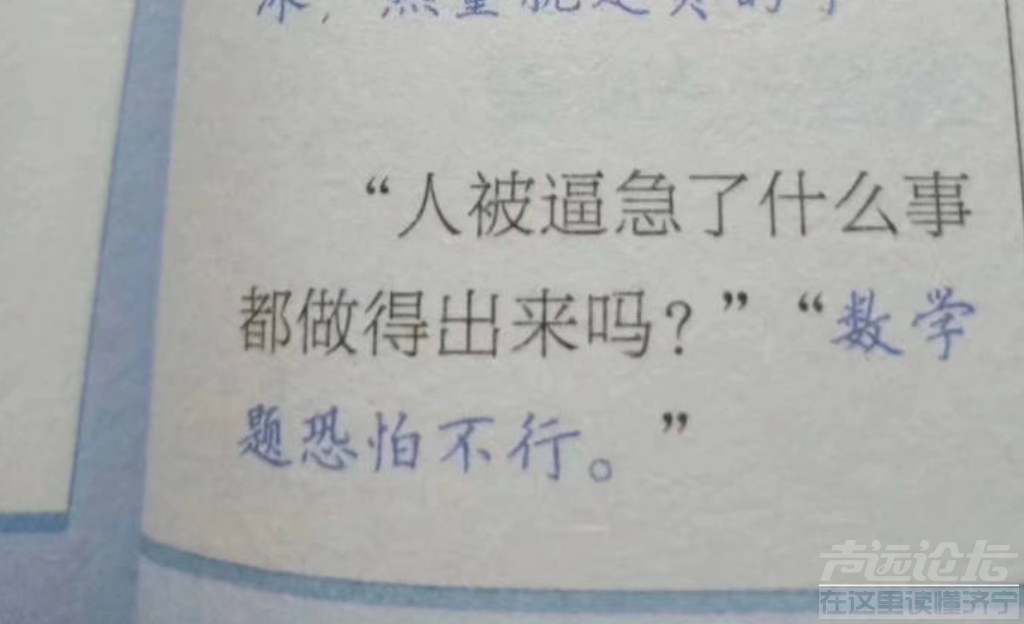 冰，热量就是负的了
“人被逼急了什么事
都做得出来吗？”“数学
题恐怕不行。”
声远论坛
在这里读懂济宁